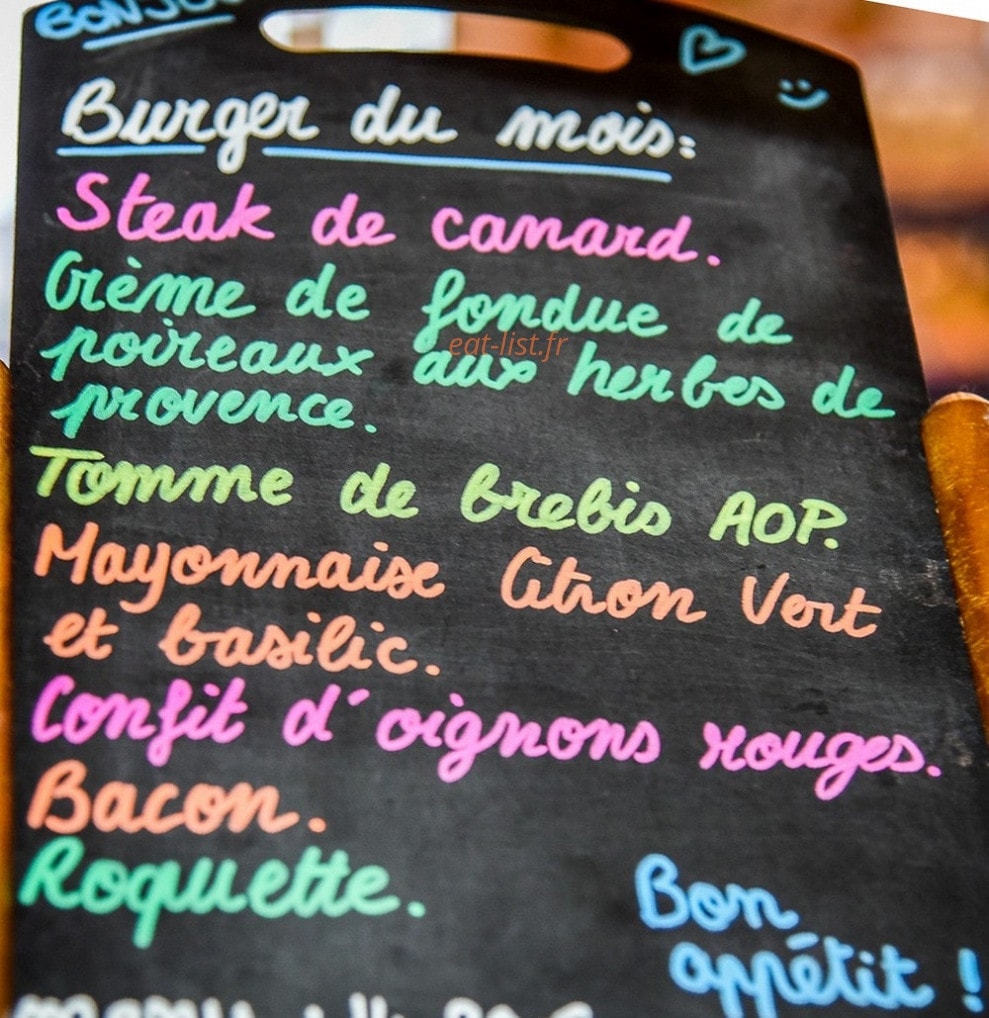 BONJOU
Burger du mois:
Steak de canard.
Crème de fondue de
poireaux aux herbes de
provence.
eat-list.fr
Tomme de brebis AOP.
Mayonnaise Citron Vert
et basilic.
Confit d'oignons rouges.
Bacon.
Roquette.
Bon
appétit !